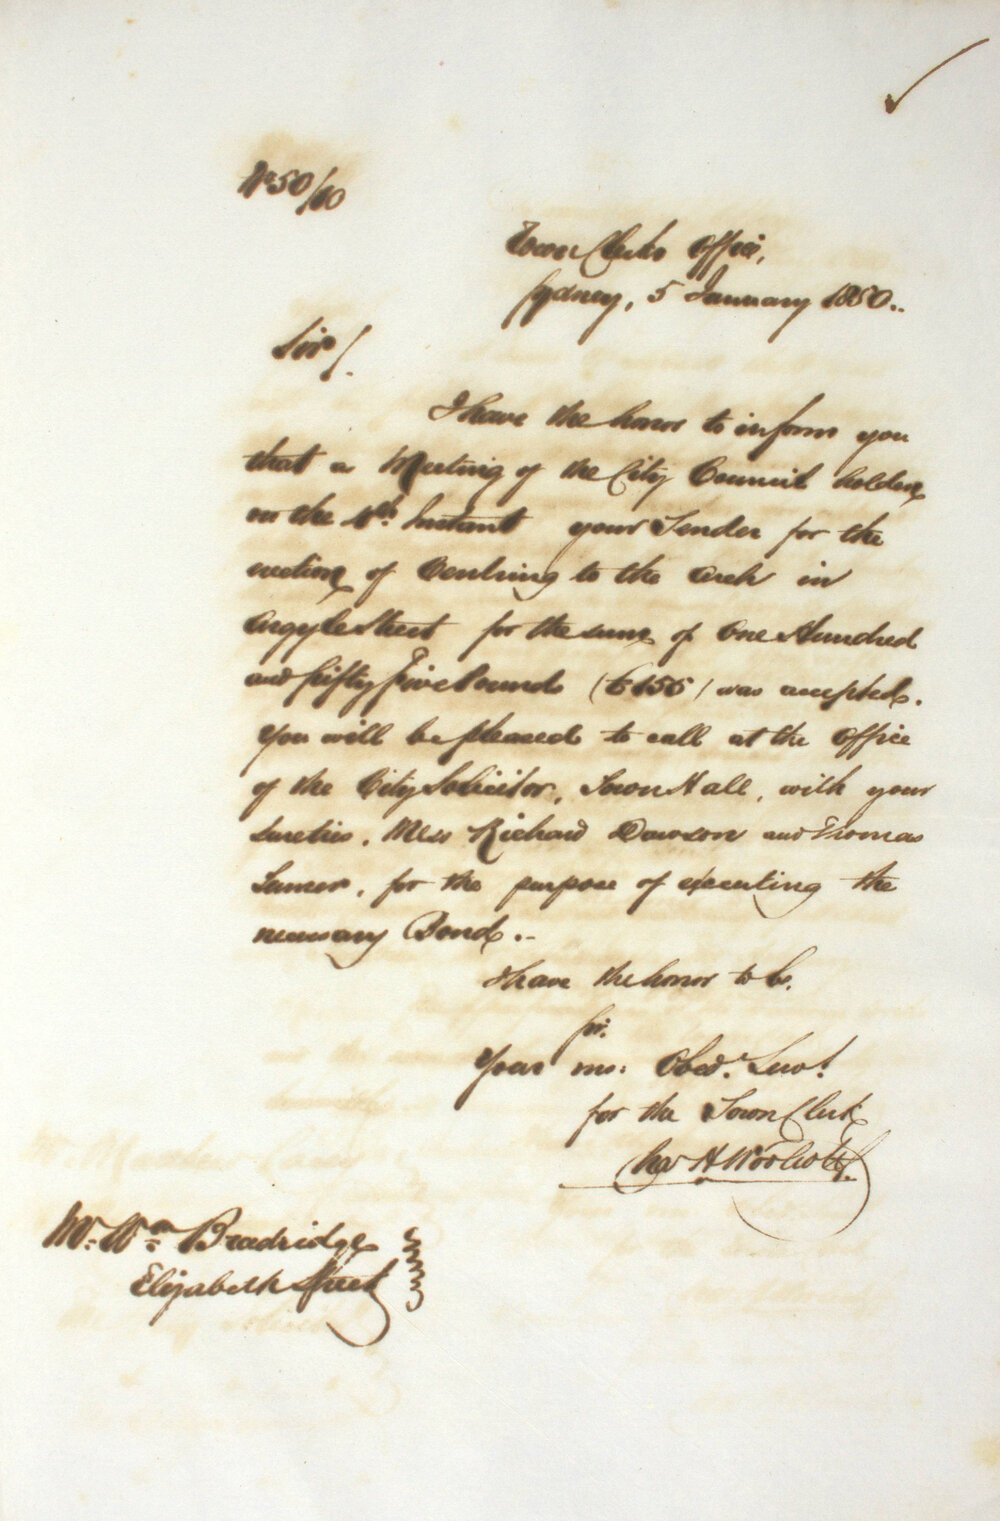 No 50/10
Town Clerks Office,
Sydney, 5 January 1850..
Sir/.
I have the honor to inform you
that a Meeting of the City Council holden
on the 4th Instant your Tender for the
erection of Centring to the Arch in
Argyle Street for the sum of One Hundred
and fifty five Pounds (£155) was accepted.
You will be pleased to call at the Office
of the City Solicitor, Town Hall, with your
sureties, Mess Richard Dawson and Thomas
for the purpose of executing the
necessary Bond..
I have the honor to be.
Sir.
Your mo: Obed. Serv!
for the Town Clerk
Chas H Woolcott
Mr. Wm Beadridge
Elizabeth Street